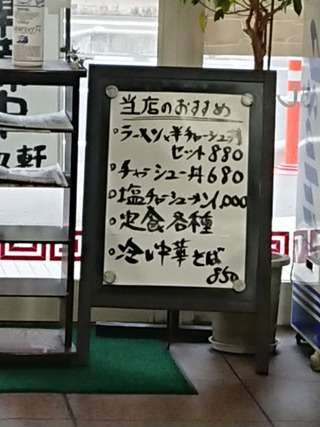 当店のおすすめ
ラーメン、半チャーシュー丼
セット 880
チャーシュー丼 680
塩チャーシューメン 1,000
定食各種
冷し中華そば
850
軒